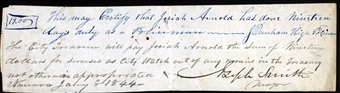 19.00
This may Certify that Josiah Arnold has done Nineteen
days duty as a Policeman J Dunham High P
The City Treasurer will pay Josiah Arnold the Sum of Nineteen
dollars for services as City Watch out of any monies in the Treasury
not otherwise appropriated
Joseph Smith
Nauvoo Jany 8 1844
Mayor